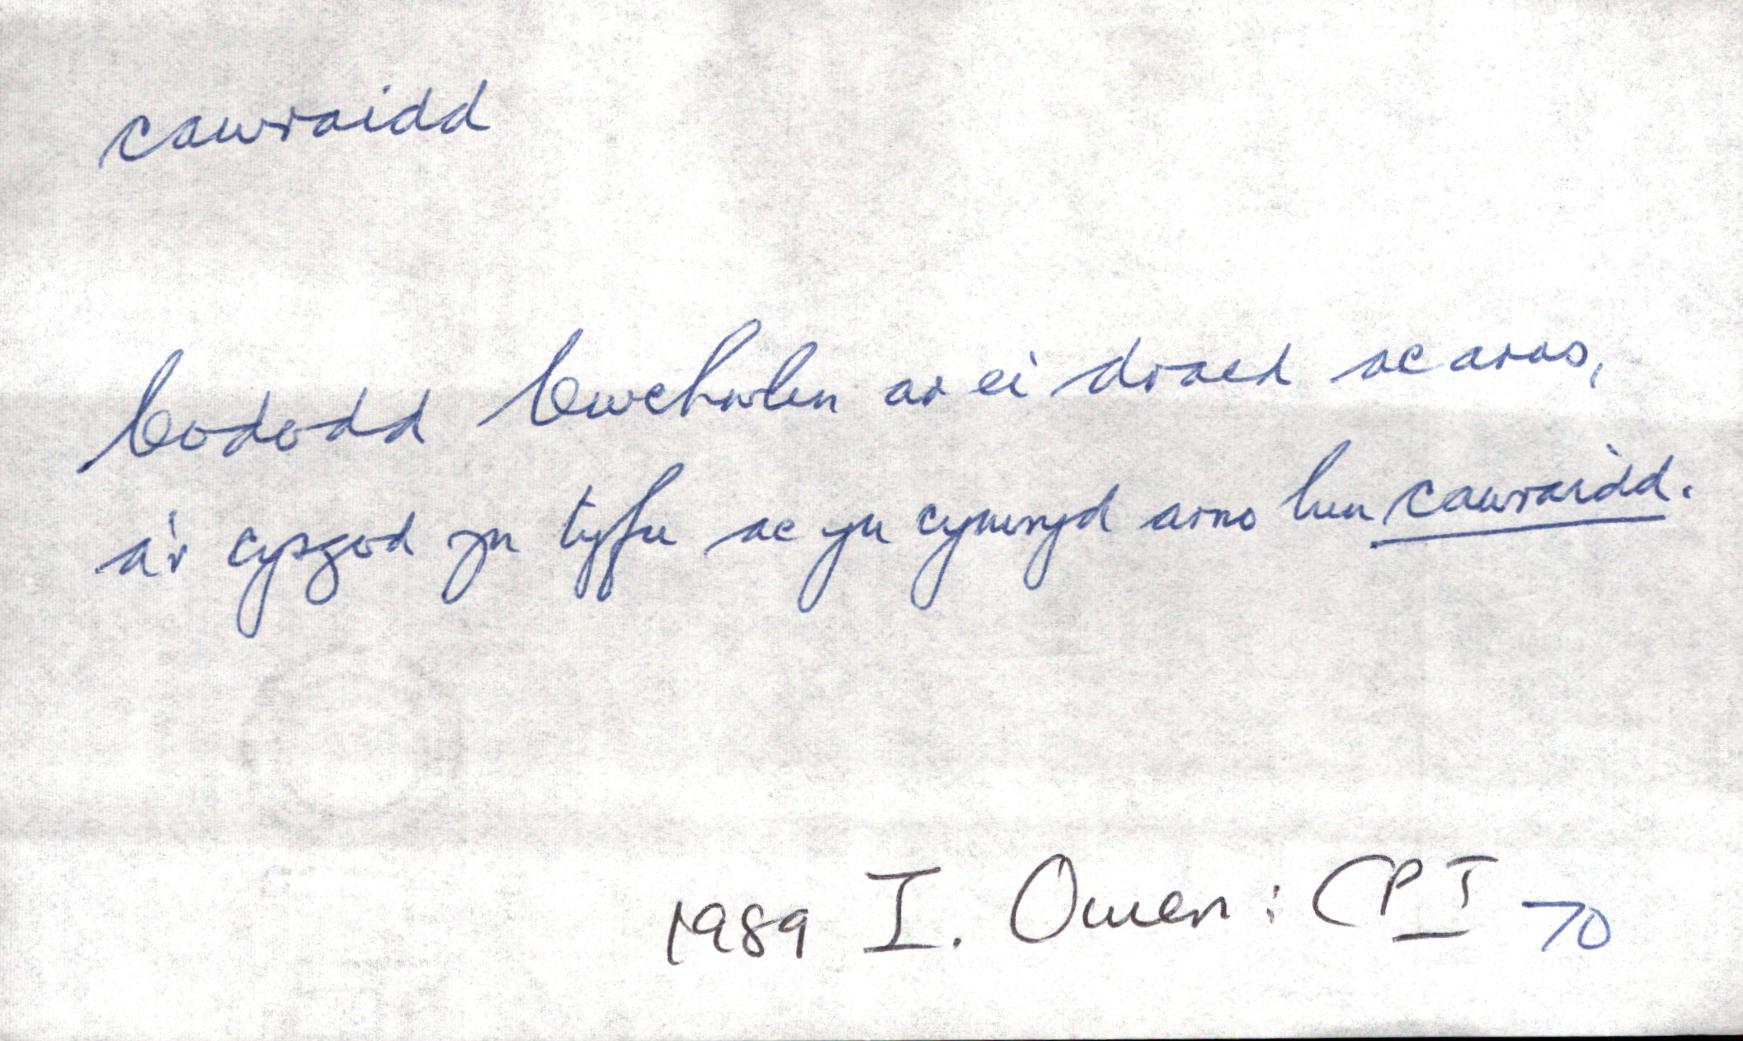 cawraidd
Cododd Cwchwlin ar ei draed ac aros,
a'r cysgod yn tyfu ac yn cymryd arno lun cawraidd.
1989 I. Owen: CPI 70